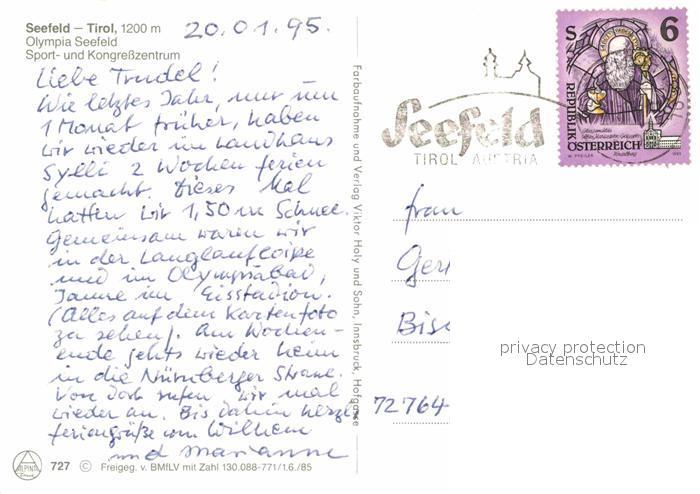 Seefeld – Tirol, 1200 m
Olympia Seefeld
Sport- und Kongreßzentrum
20.01.95.
Liebe Trudel!
Wie letztes Jahr, nur um
1 Monat früher, haben
wir wieder im Landhaus
Sylli 2 Wochen ferien
gemacht. Dieses Mal
hatten wir 1,50 m Schnee.
Gemeinsam waren wir
in der Langlaufloipe
und im Olympiabad,
Janne im Eisstadion.
(Alles auf dem Kartenfoto
zu sehen). Am Wochen-
ende gehts wieder heim
in die Nürnberger Strasse.
Von dort rufen wir mal
wieder an. Bis dahin herzl.
feriengrüße von Wilhelm
und Marianne
727 © Freigeg. v. BMfLV mit Zahl 130.088-771/1.6./85
ALPINA
Farbaufnahme und Verlag Viktor Holy und Sohn, Innsbruck, Hofgasse
Seefeld
TIROL AUSTRIA
S 6
REPUBLIK
ÖSTERREICH
frau
Ger
Bis
72764
privacy protection
Datenschutz